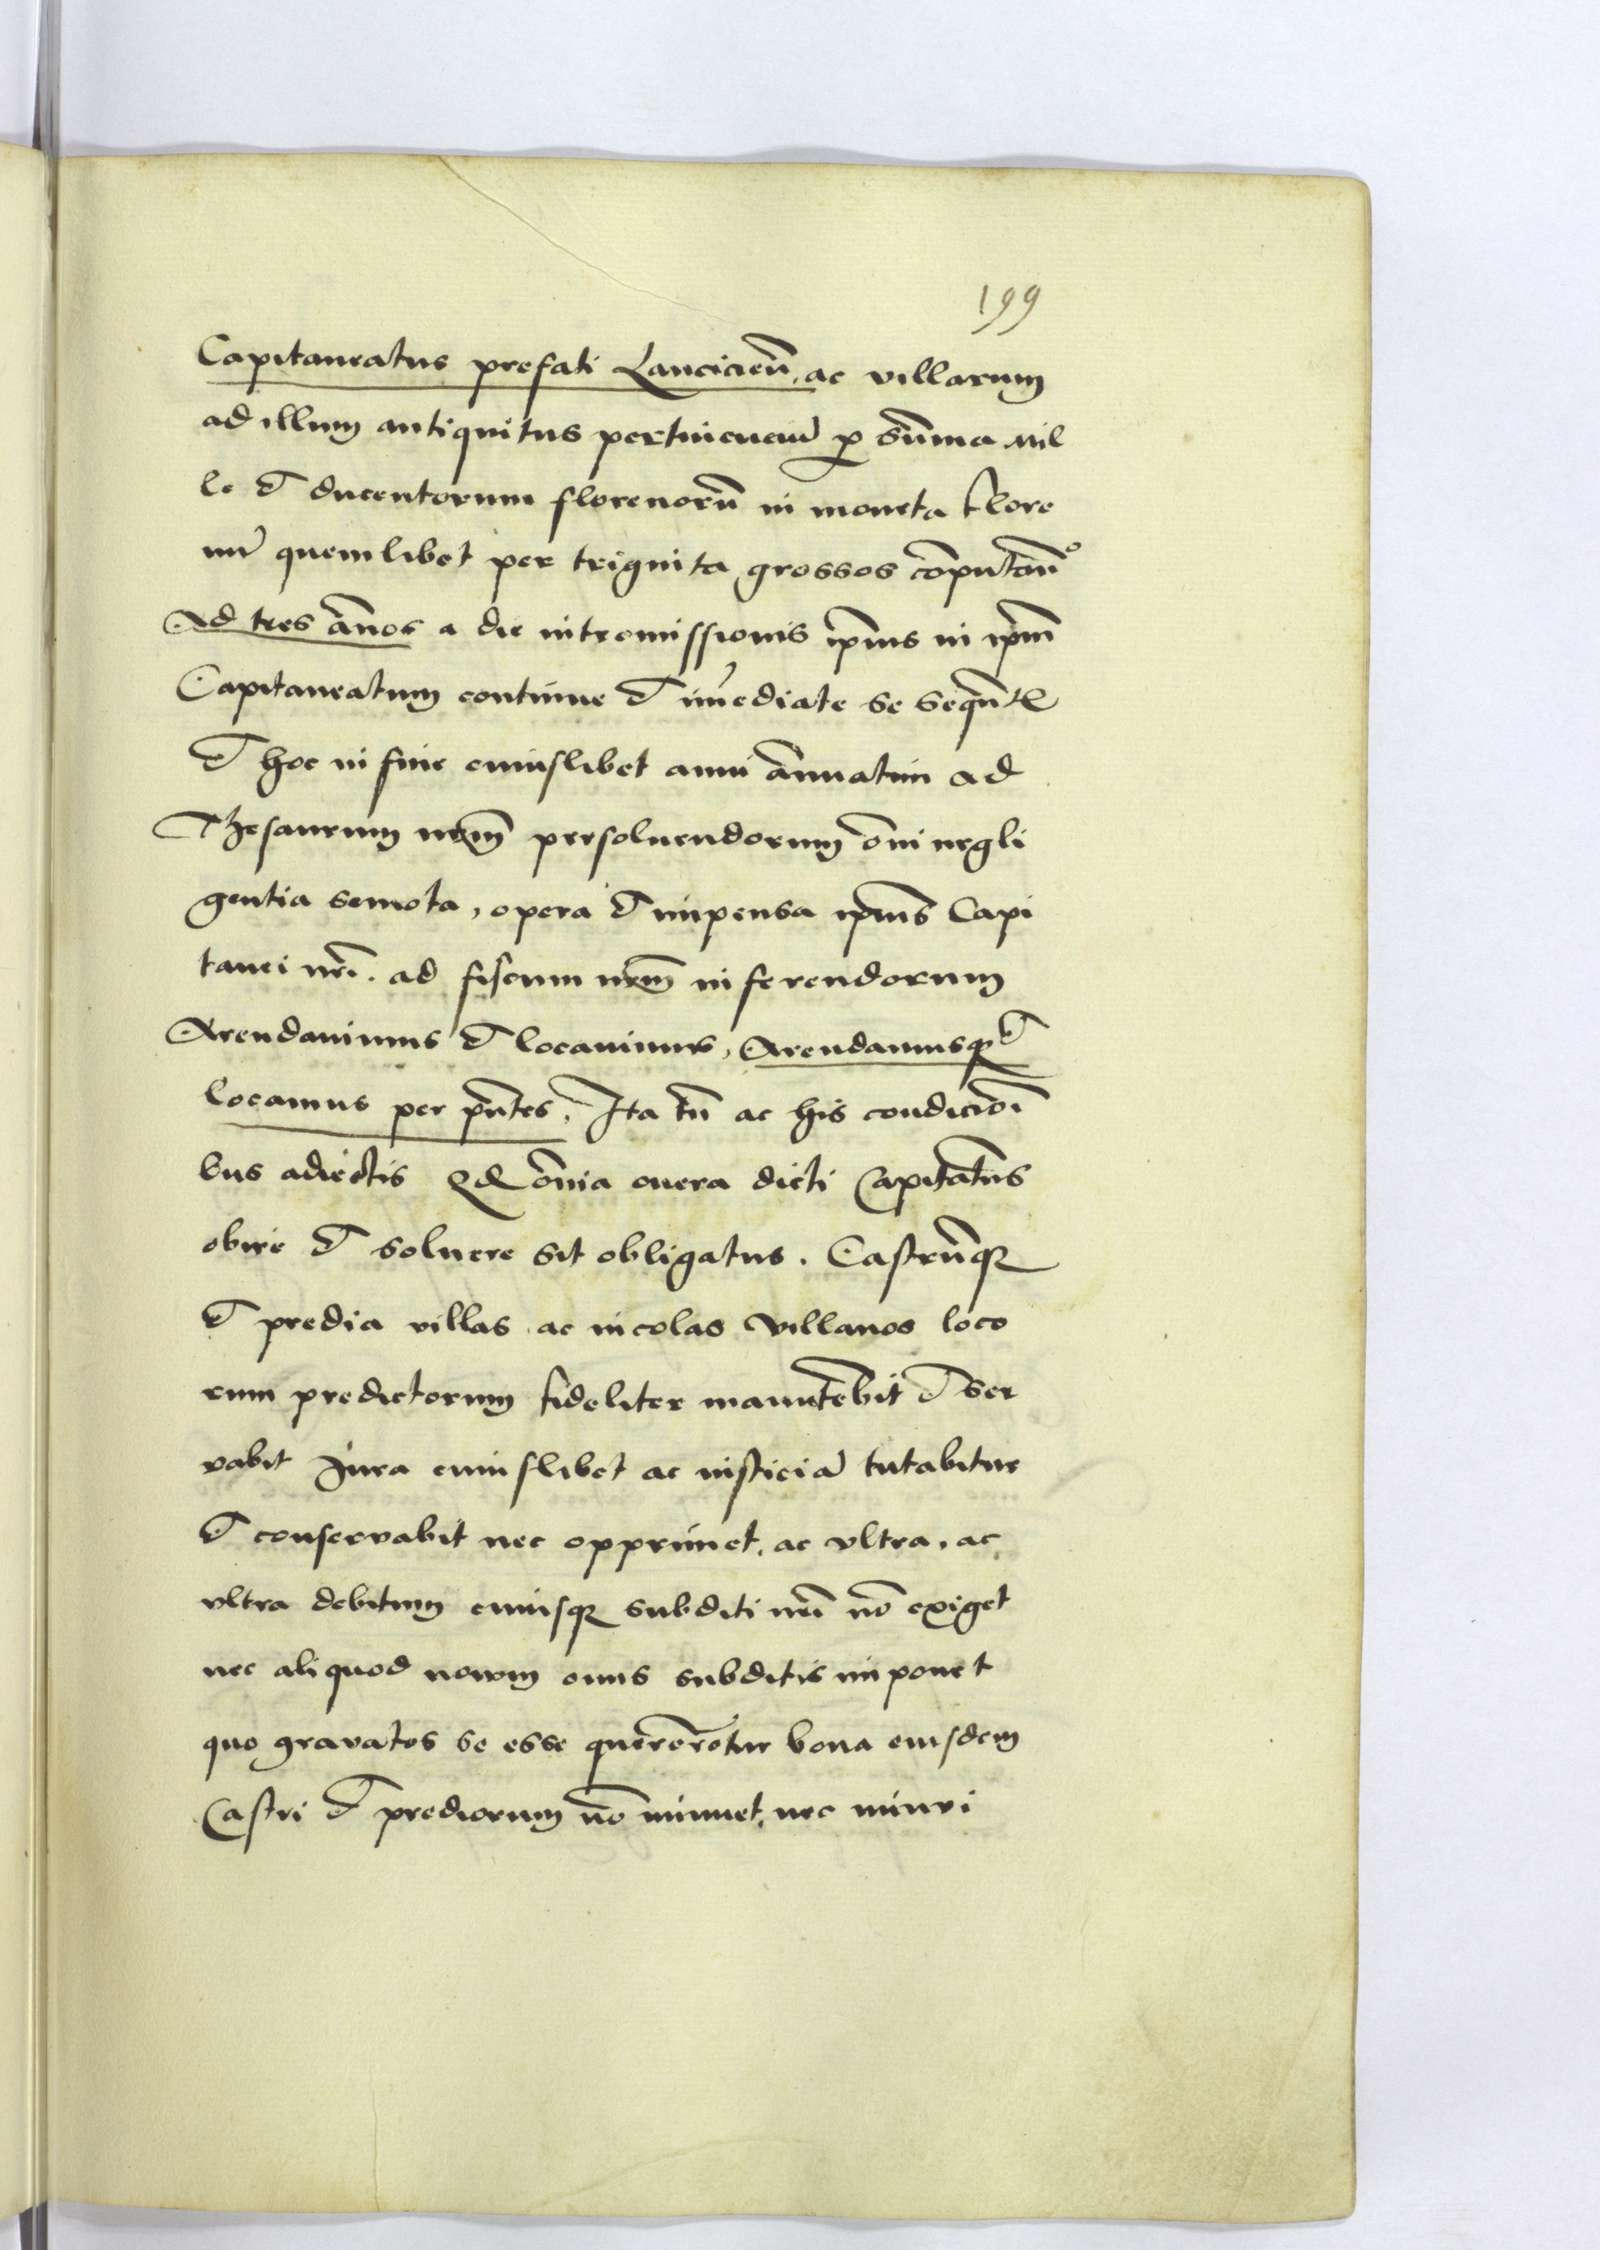 199
Capitaneatus prefati Lancicien̄. ac villarum
ad illum antiquitus pertinenciū p̱ sūma mil
le et ducentorum florenorū in moneta flore
nū quemlibet per triginta grossos cōputan̄º
Ad tres ānos a die intromissionis ip̄ius in ip̄m
Capitaneatum continue et im̄ediate se sequn̄t
et hoc in fine cuiuslibet anni ānuatim ad
Thesaurum nrm̄ persoluendorum om̄i negli
gentia semota, opera et impensa ip̄ius Capi
tanei nrī. ad fiscum nrm̄ inferendorum
Arendauimus et locauimus, Arendamusqꝫ et
locamus per pn̄tes, Ita tn̄ ac his condicioī
bus adiectis Qd om̄ia onera dicti Capitāt̄us
obire et soluere sit obligatus. Castrūqꝫ
et predia villas ac incolas villanos loco
rum predictorum fideliter manutēbit et ser
vabit Jura cuiuslibet ac iusticiā tutabitur
et conservabit nec opprimet, ac vltra, ac
vltra debitum cuiusqꝫ subditi nrī nō exiget
nec aliquod nowm onus subditis imponet
quo gravatos se esse quererētur bona eiusdem
Castri et prediorum nō minuet, nec minui